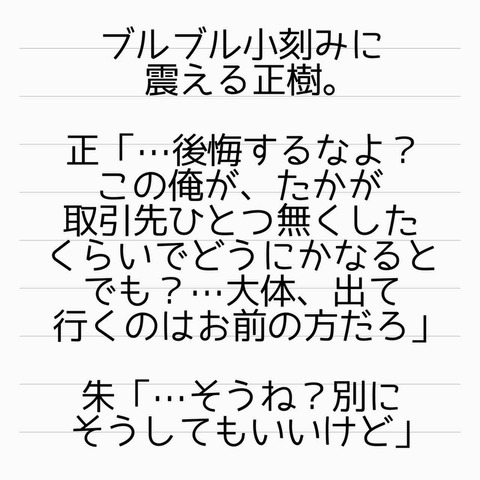 ブルブル小刻みに
震える正樹。
正「…後悔するなよ？
この俺が、たかが
取引先ひとつ無くした
くらいでどうにかなると
でも？…大体、出て
行くのはお前の方だろ」
朱「…そうね？別に
そうしてもいいけど」